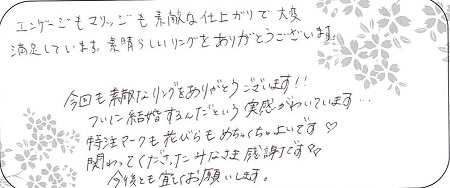 エンゲージもマリッジも素敵な仕上がりで大変
満足しています。素晴らしいリングをありがとうございます。
今回も素敵なリングをありがとうございます!!
ついに結婚するんだという実感がわいています…
特注マークも花びらもめちゃくちゃよいです♡
関わってくださったみなさま感謝です♡
今後とも宜しくお願いします。